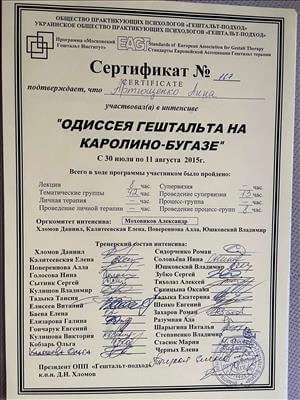 ОБЩЕСТВО ПРАКТИКУЮЩИХ ПСИХОЛОГОВ «ГЕШТАЛЬТ-ПОДХОД»
УКРАИНСКОЕ ОБЩЕСТВО ПРАКТИКУЮЩИХ ПСИХОЛОГОВ «ГЕШТАЛЬТ-ПОДХОД»
Программа «Московский Гештальт Институт»
EAGT
Standards of European Association for Gestalt Therapy
Стандарты Европейской Ассоциации Гештальт терапии
Сертификат № 117
CERTIFICATE
подтверждает, что Артющенко Анна
участвовал(а) в интенсиве
"ОДИССЕЯ ГЕШТАЛЬТА НА
КАРОЛИНО-БУГАЗЕ"
С 30 июля по 11 августа 2015г.
Всего в ходе программы участником было пройдено:
Лекции час. Супервизия – час.
Тематические группы 42 час. Проведение супервизии 13 час.
Личная терапия – час. Процесс-группы – час.
Проведение личной терапии – час. Проведение процесс-групп 8 час.
Оргкомитет интенсива: Моховиков Александр
Хломов Даниил, Калитеевская Елена, Повереннова Алла, Юшковский Владимир
Тренерский состав интенсива:
Хломов Даниил Сидорченко Роман
Калитеевская Елена Соловьёва Нина
Поверенова Алла Юшковский Владимир
Голосова Нина Зубко Сергей
Сытник Сергей Тихолаз Алексей
Кулишов Владимир Скриницына Оксана
Тадыка Таисия Тадыка Екатерина
Елисеев Виталий Шевко Евгений
Баева Елена Захаров Роман
Елизарова Галина Разумная Ада
Гончарук Евгений Шарыгина Наталья
Кулишова Виктория Степаненко Владимир
Кобзарь Ольга Стасюк Мария
Ольга Черных Елена
Президент ОПП «Гештальт-подход»
к.п.н. Д.Н. Хломов